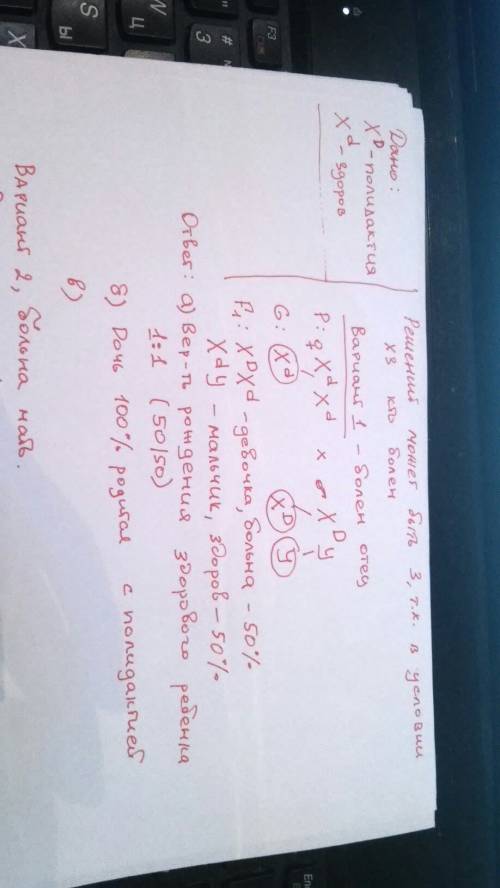 Дано:
X^D - полидактия
X^d - здоров
Решений может быть 3, т.к. в условии
хз кто болен
Вариант 1 - болен отец
P: ♀ X^d X^d × ♂ X^D y
G: X^d X^D y
F₁: X^D X^d - девочка, больна - 50%
X^d y - мальчик, здоров - 50%
Ответ: а) Вер-ть рождения здорового ребенка
1:1 (50/50)
б) Дочь 100% родится с полидактией
в)
Вариант 2, больна мать.